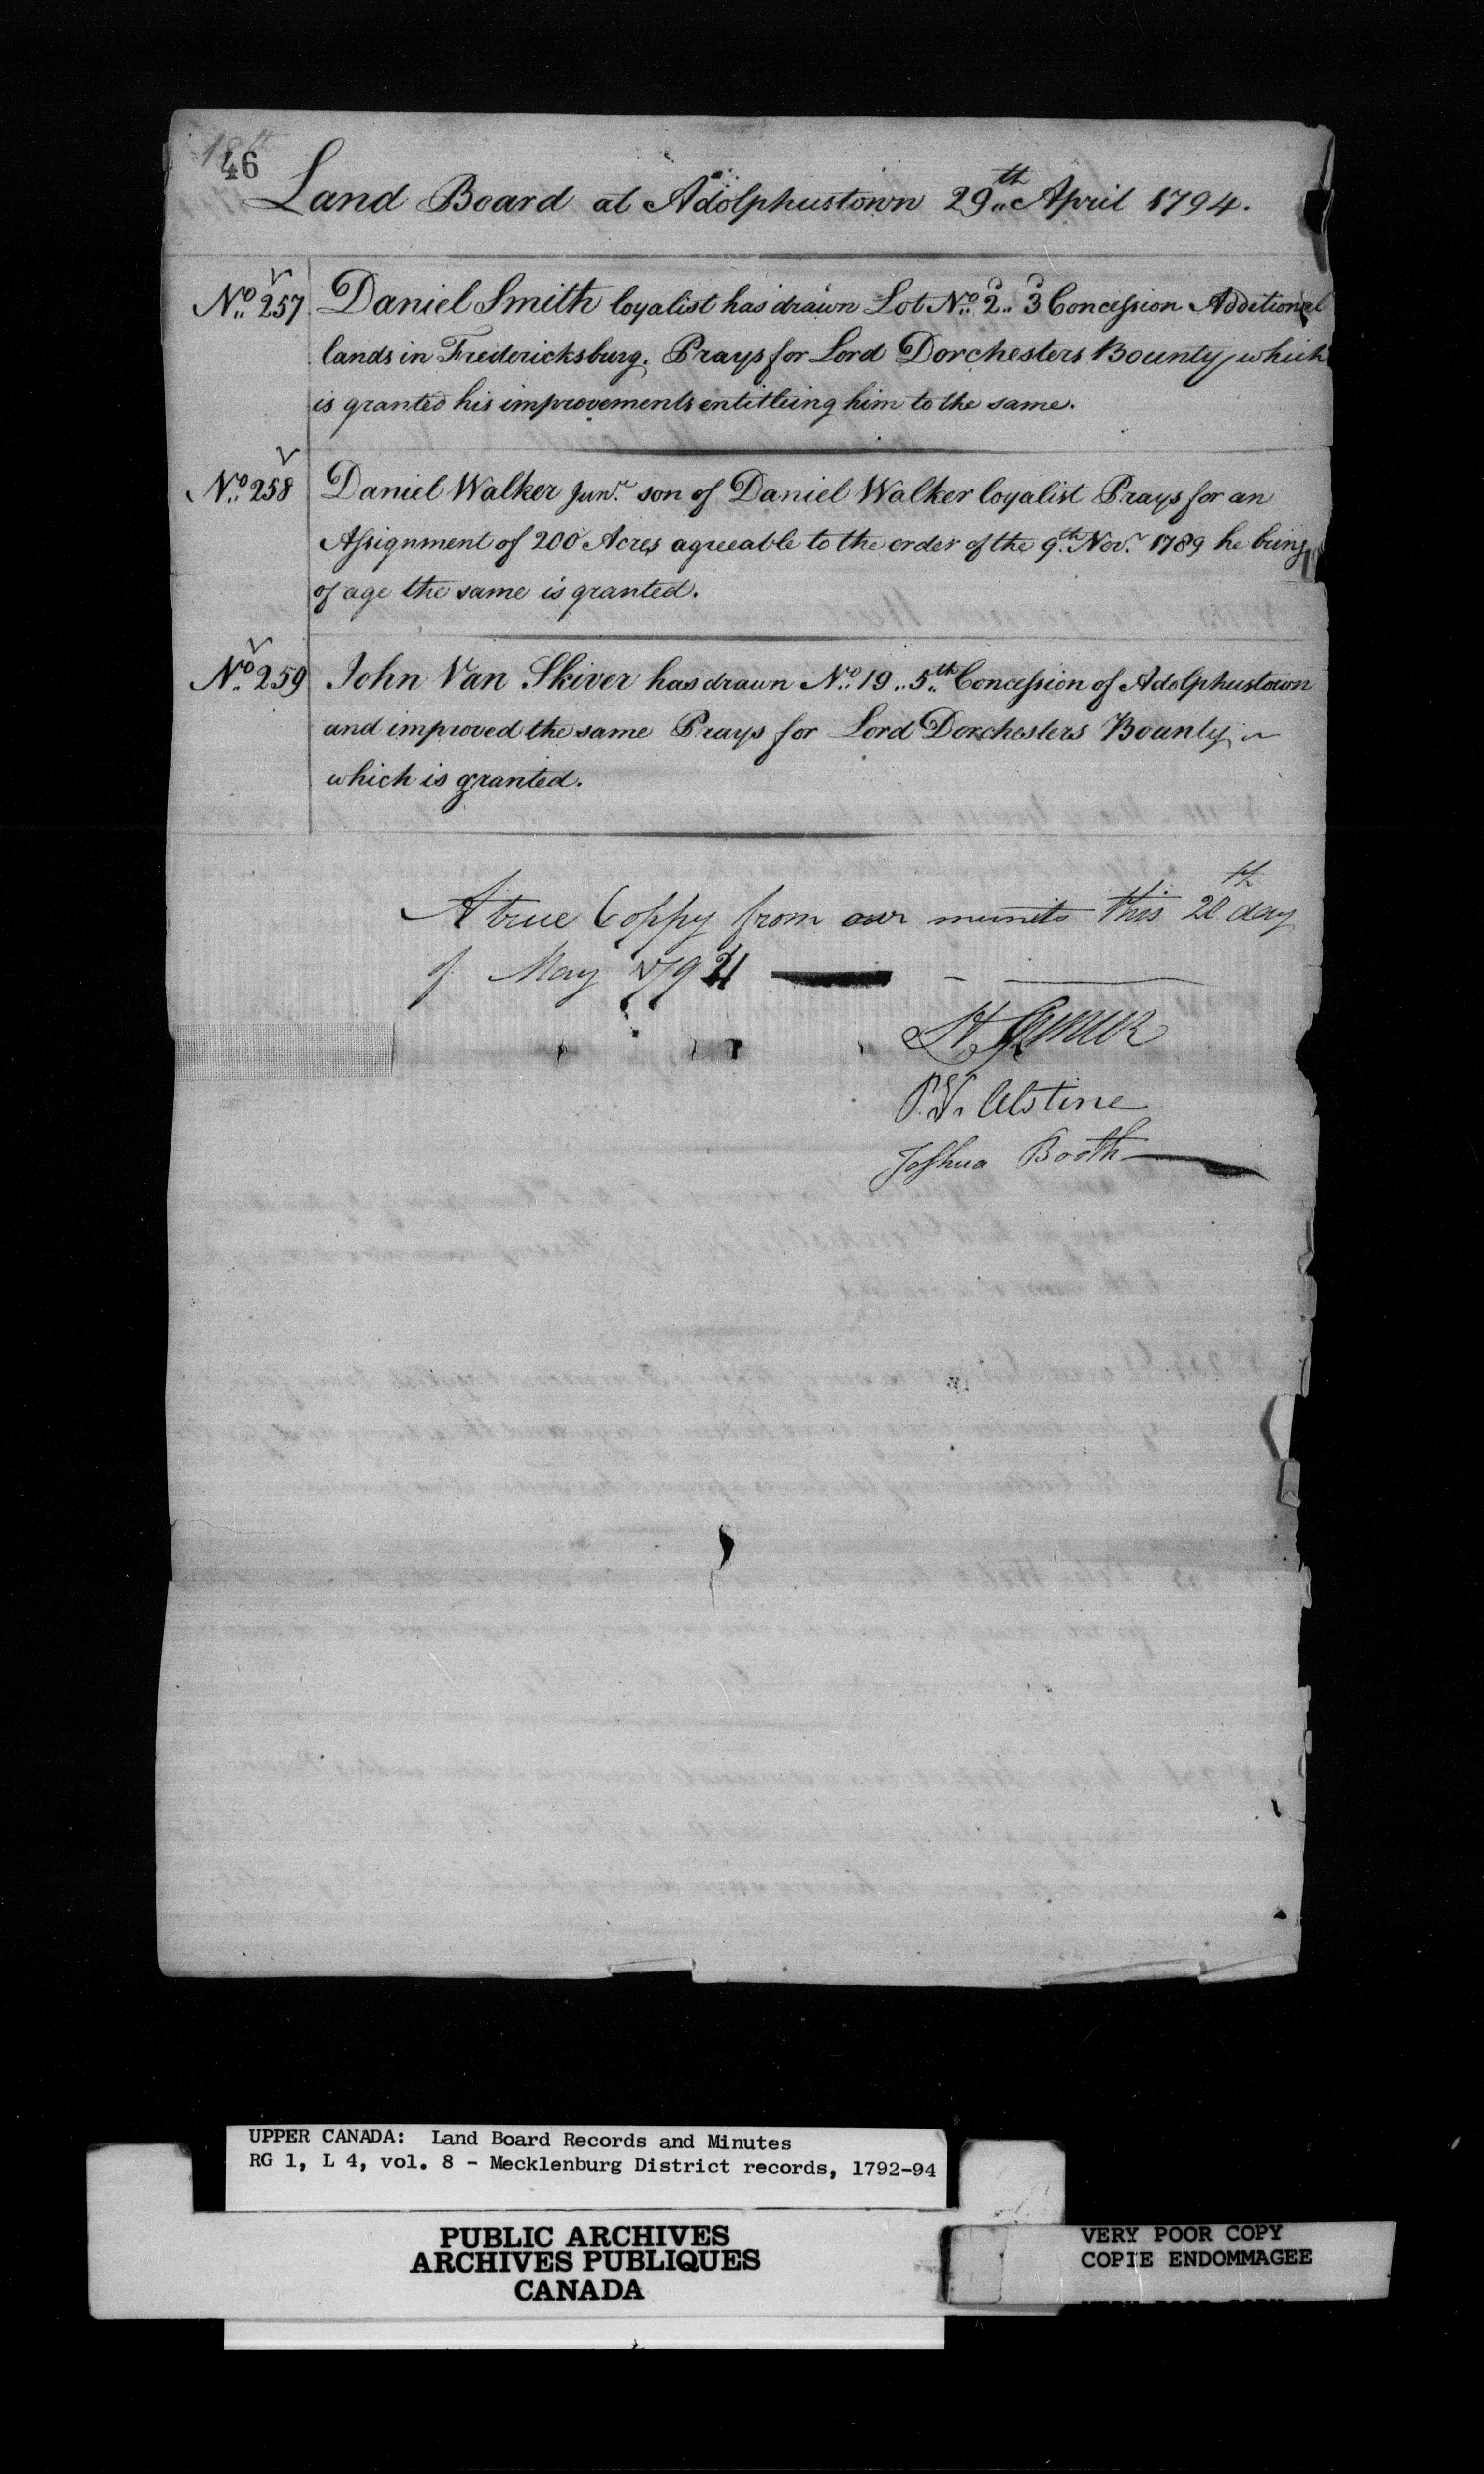 46
Land Board at Adolphustown 29th April 1794.
No. 257 Daniel Smith loyalist has drawn Lot No. 2.. 3d Concession Additional
lands in Fredericksburg. Prays for Lord Dorchesters Bounty which
is granted his improvements entitleing him to the same.
No. 258 Daniel Walker Junr. son of Daniel Walker loyalist Prays for an
Assignment of 200 Acres agreeable to the order of the 9th Novr. 1789 he being
of age the same is granted.
No. 259 John Van Skiver has drawn No. 19.. 5th Concession of Adolphustown
and improved the same Prays for Lord Dorchesters Bounty
which is granted.
A true Coppy from our munits this 20th day
of May 1794
P. V. Alstine
Joshua Booth
UPPER CANADA: Land Board Records and Minutes
RG 1, L 4, vol. 8 - Mecklenburg District records, 1792-94
PUBLIC ARCHIVES
ARCHIVES PUBLIQUES
CANADA
VERY POOR COPY
COPIE ENDOMMAGEE
VERY POOR COPY